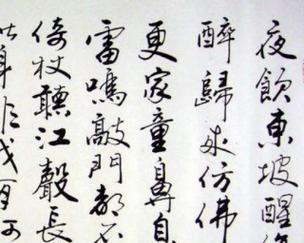 夜飲東坡醒復
醉歸來仿佛
更家童鼻
雷鳴敲門都不
倚杖聽江聲長
身